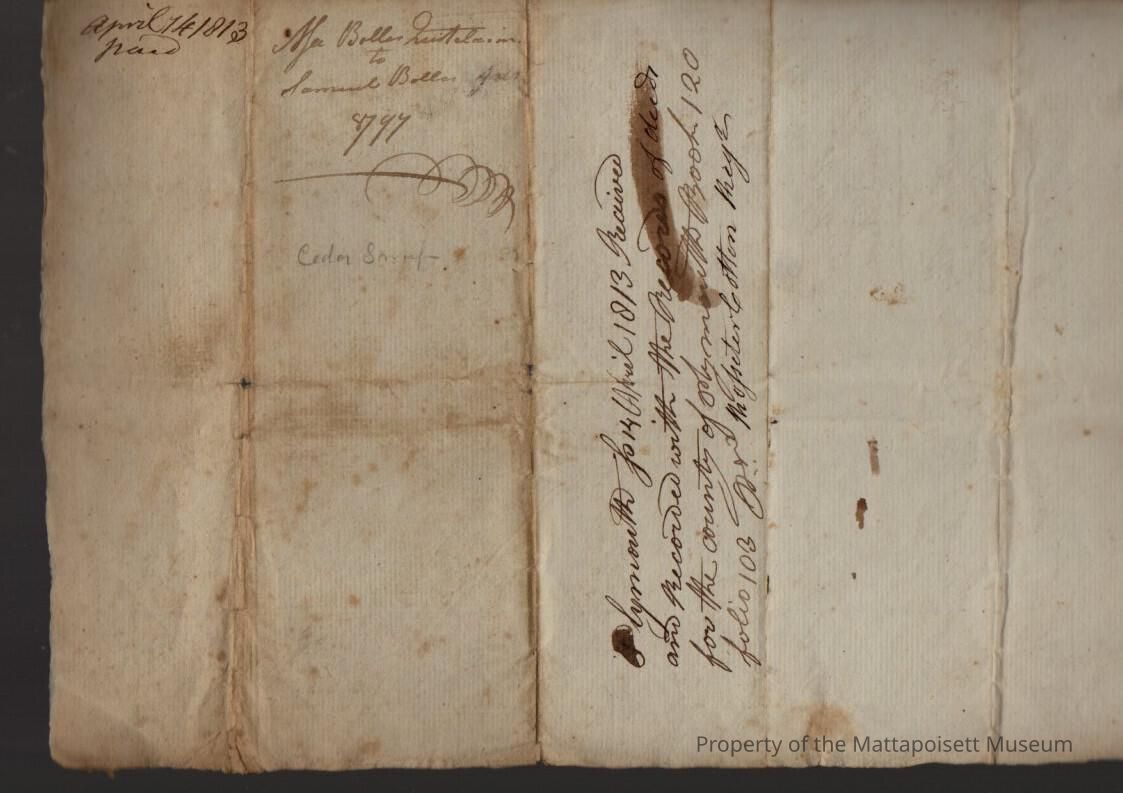 April 14 1813
paid
Asa Bolles
to
Samuel Bolles
1797
Cedar Swamp
Plymouth ss 14 April 1813 Received
and Recorded with the Records of deeds
for the county of Plymouth Book 120
folio 103 Rossiter Cotton Regr
Property of the Mattapoisett Museum